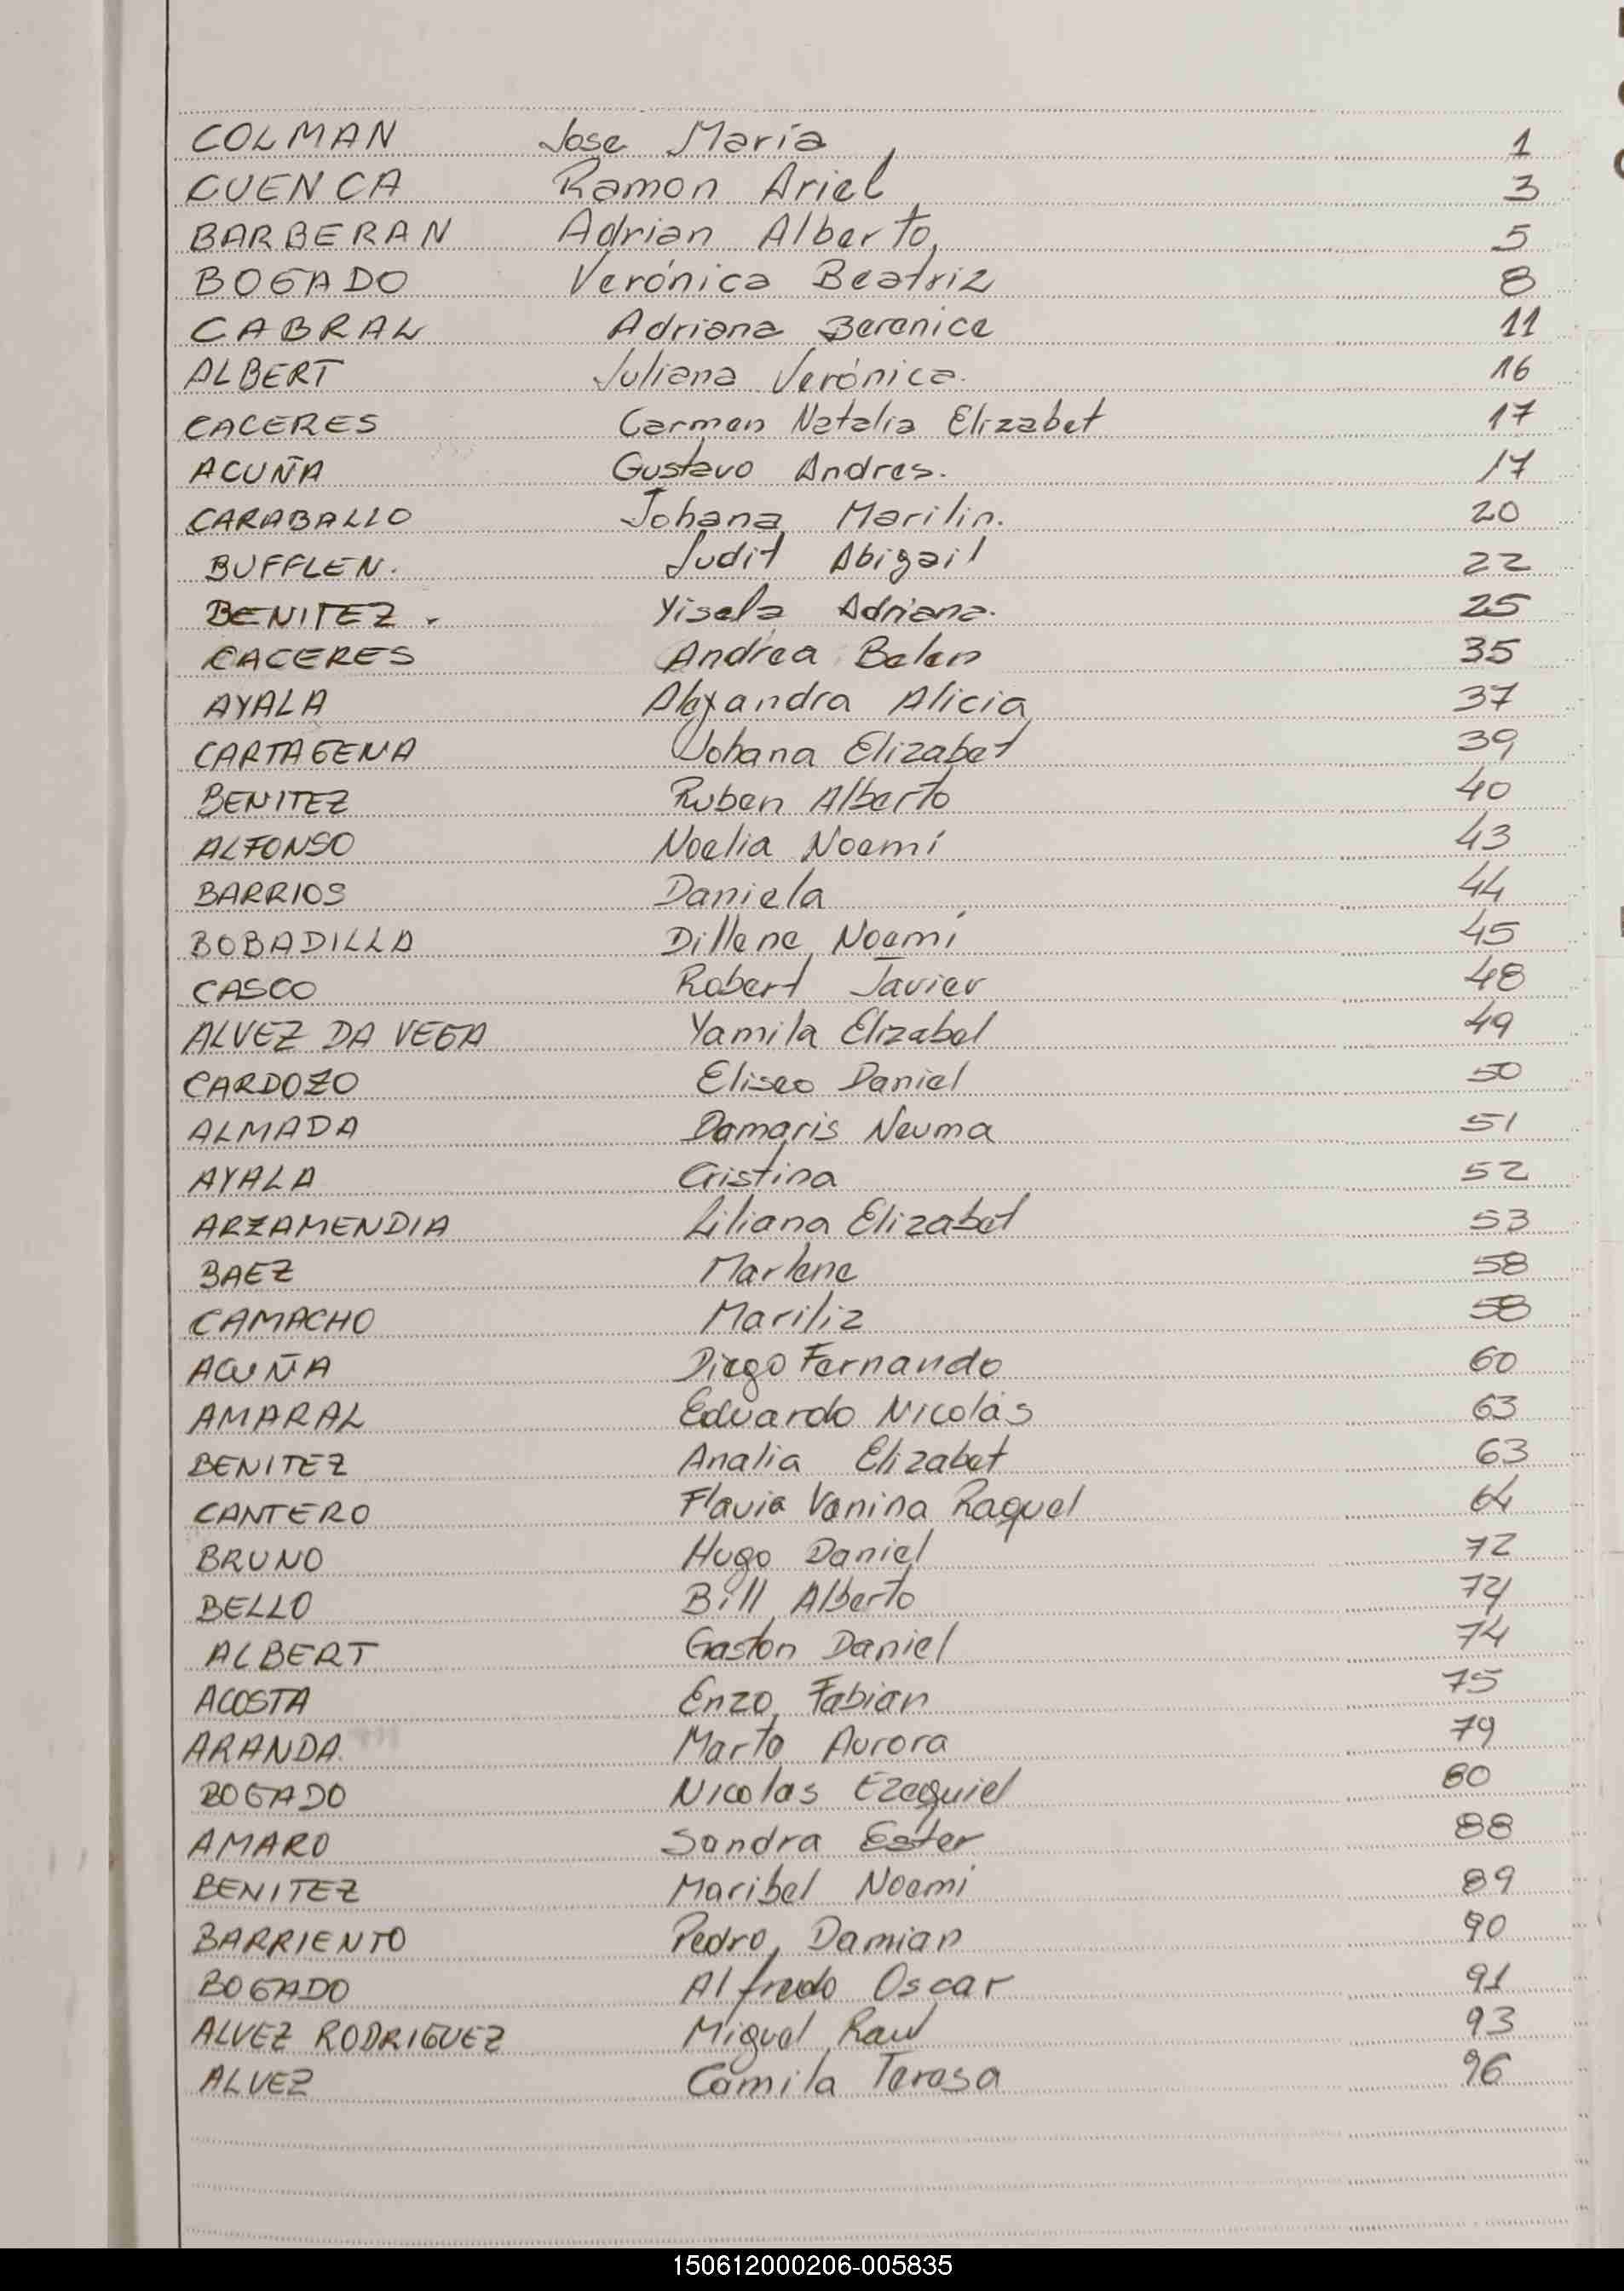 COLMAN Jose María 1
CUENCA Ramon Ariel 3
BARBERAN Adrian Alberto 5
BOGADO Verónica Beatriz 8
CABRAL Adriana Berenice 11
ALBERT Juliana Verónica. 16
CACERES Carmen Natalia Elizabet 17
ACUÑA Gustavo Andres. 17
CARABALLO Johana Marilin. 20
BUFFLEN. Judit Abigail 22
BENITEZ. Yisela Adriana. 25
CACERES Andrea Belen 35
AYALA Alexandra Alicia 37
CARTAGENA Johana Elizabet 39
BENITEZ Ruben Alberto 40
ALFONSO Noelia Noemí 43
BARRIOS Daniela 44
BOBADILLA Dillene Noemí 45
CASCO Robert Javier 48
ALVEZ DA VEGA Yamila Elizabel 49
CARDOZO Eliseo Daniel 50
ALMADA Damaris Neuma 51
AYALA Cristina 52
ARZAMENDIA Liliana Elizabet 53
BAEZ Marlene 58
CAMACHO Mariliz 58
ACUÑA Diego Fernando 60
AMARAL Eduardo Nicolás 63
BENITEZ Analia Elizabet 63
CANTERO Flavia Vanina Raquel 64
BRUNO Hugo Daniel 72
BELLO Bill Alberto 74
ALBERT Gaston Daniel 74
ACOSTA Enzo Fabian 75
ARANDA Marta Aurora 79
BOGADO Nicolas Ezequiel 80
AMARO Sandra Ester 88
BENITEZ Maribel Noemí 89
BARRIENTO Pedro Damian 90
BOGADO Alfredo Oscar 91
ALVEZ RODRIGUEZ Miguel Raul 93
ALVEZ Camila Teresa 96
150612000206-005835